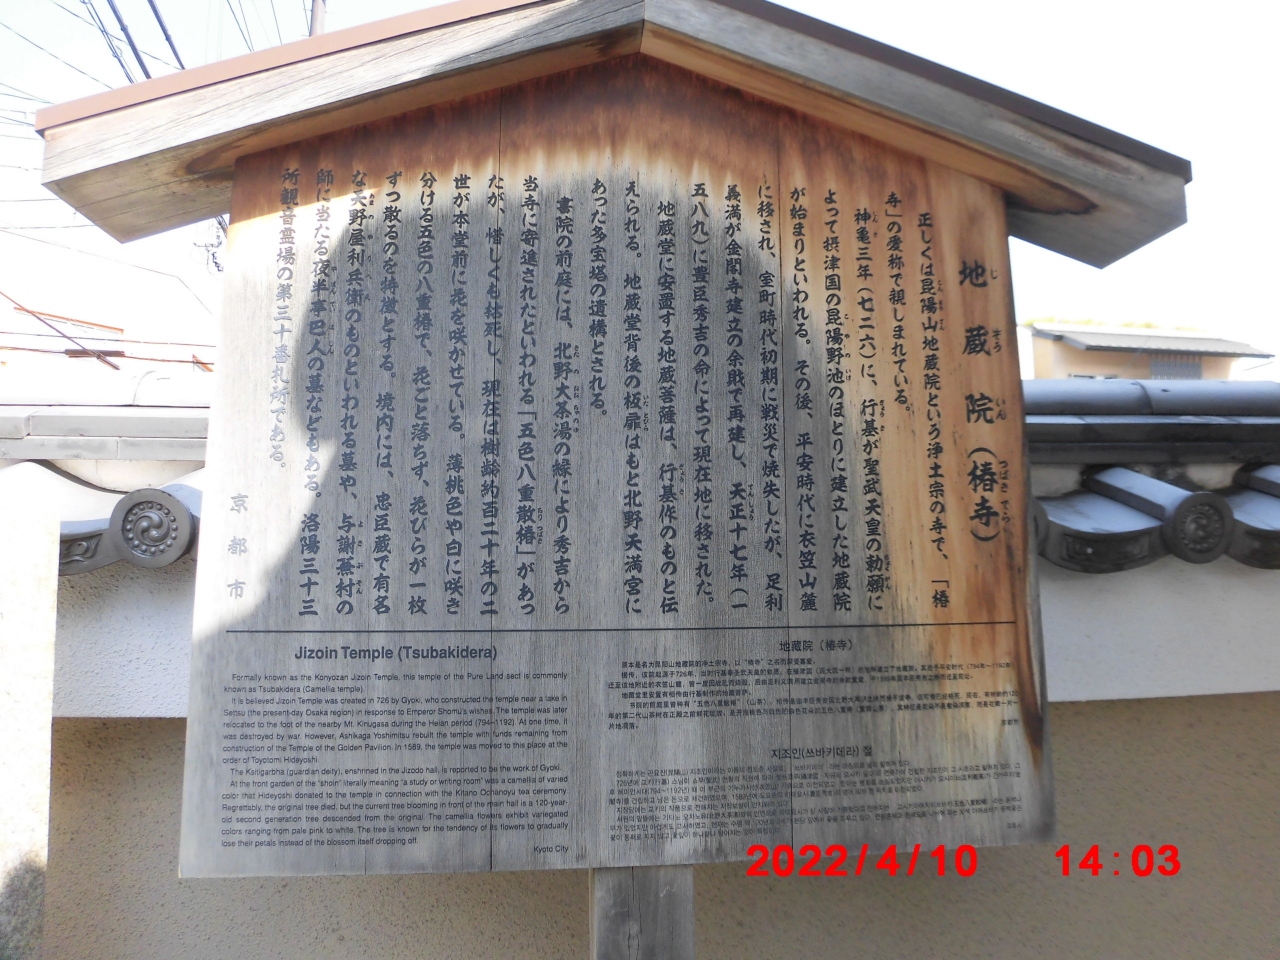 地蔵院（椿寺）
正しくは昆陽山地蔵院という浄土宗の寺で、「椿
寺」の愛称で親しまれている。
神亀三年（七二六）に、行基が聖武天皇の勅願に
よって摂津国の昆陽野池のほとりに建立した地蔵院
が始まりといわれる。その後、平安時代に衣笠山麓
に移され、室町時代初期に戦災で焼失したが、足利
義満が金閣寺建立の余財で再建し、天正十七年（一
五八九）に豊臣秀吉の命によって現在地に移された。
地蔵堂に安置する地蔵菩薩は、行基作のものと伝
えられる。地蔵堂背後の板扉はもと北野天満宮に
あった多宝塔の遺構とされる。
書院の前庭には、北野大茶湯の縁により秀吉から
当寺に寄進されたといわれる「五色八重散椿」があっ
たが、惜しくも枯死し、現在は樹齢約百二十年の二
世が本堂前に花を咲かせている。薄桃色や白に咲き
分ける五色の八重椿で、花ごと落ちず、花びらが一枚
ずつ散るのを特徴とする。境内には、忠臣蔵で有名
な天野屋利兵衛のものといわれる墓や、与謝蕪村の
師に当たる夜半亭巴人の墓などもある。洛陽三十三
所観音霊場の第三十番札所である。
京都市
Jizoin Temple (Tsubakidera)
Formally known as the Konyozan Jizoin Temple, this temple of the Pure Land sect is commonly
known as Tsubakidera (Camellia temple).
It is believed Jizoin Temple was created in 726 by Gyoki, who constructed the temple near a lake in
Settsu (the present-day Osaka region) in response to Emperor Shomu's wishes. The temple was later
relocated to the foot of the nearby Mt. Kinugasa during the Heian period (794–1192). At one time, it
was destroyed by war. However, Ashikaga Yoshimitsu rebuilt the temple with funds remaining from
construction of the Temple of the Golden Pavilion. In 1589, the temple was moved to this place at the
order of Toyotomi Hideyoshi.
The Ksitigarbha (guardian deity), enshrined in the Jizodo hall, is reported to be the work of Gyoki.
At the front garden of the "shoin" literally meaning "a study or writing room" was a camellia of varied
color that Hideyoshi donated to the temple in connection with the Kitano Ochanoyu tea ceremony
Regrettably, the original tree died, but the current tree blooming in front of the main hall is a 120-year-
old second generation tree descended from the original. The camellia flowers exhibit variegated
colors ranging from pale pink to white. The tree is known for the tendency of its flowers to gradually
lose their petals instead of the blossom itself dropping off.
Kyoto City
地藏院（椿寺）
지조인(쓰바키데라) 절
2022/4/10 14:03